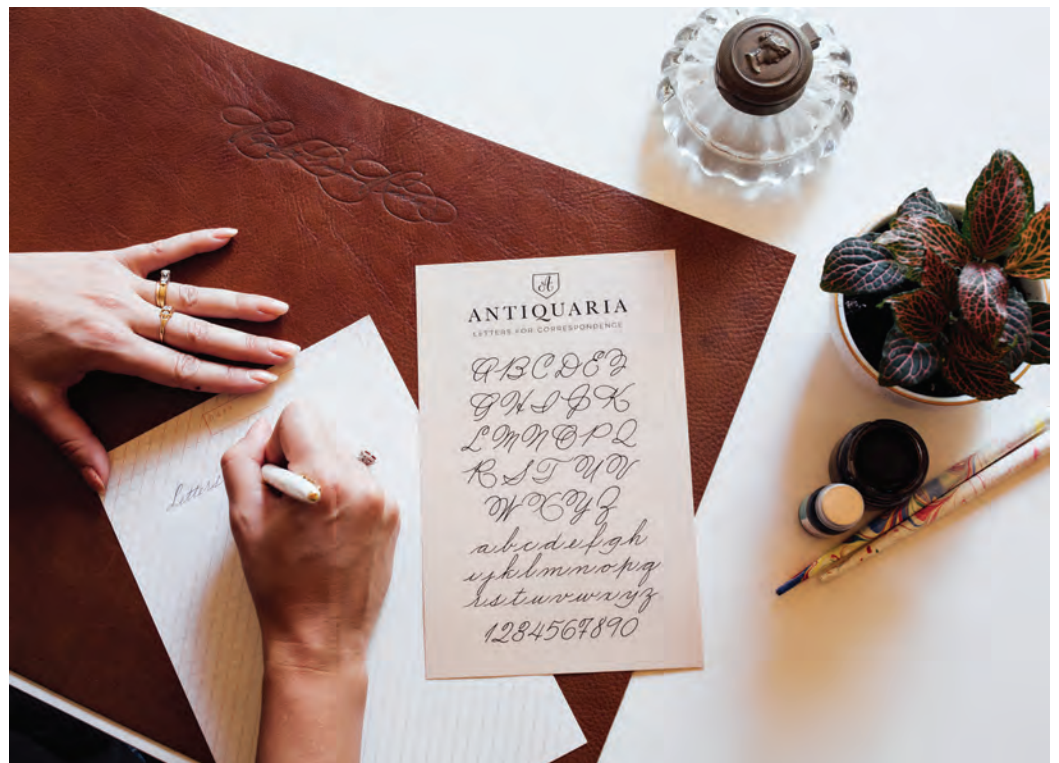 A
ANTIQUARIA
LETTERS FOR CORRESPONDENCE
A B C D E F
G H I J K
L M N O P Q
R S T U V
W X Y Z
a b c d e f g h
i j k l m n o p q
r s t u v w x y z
1234567890